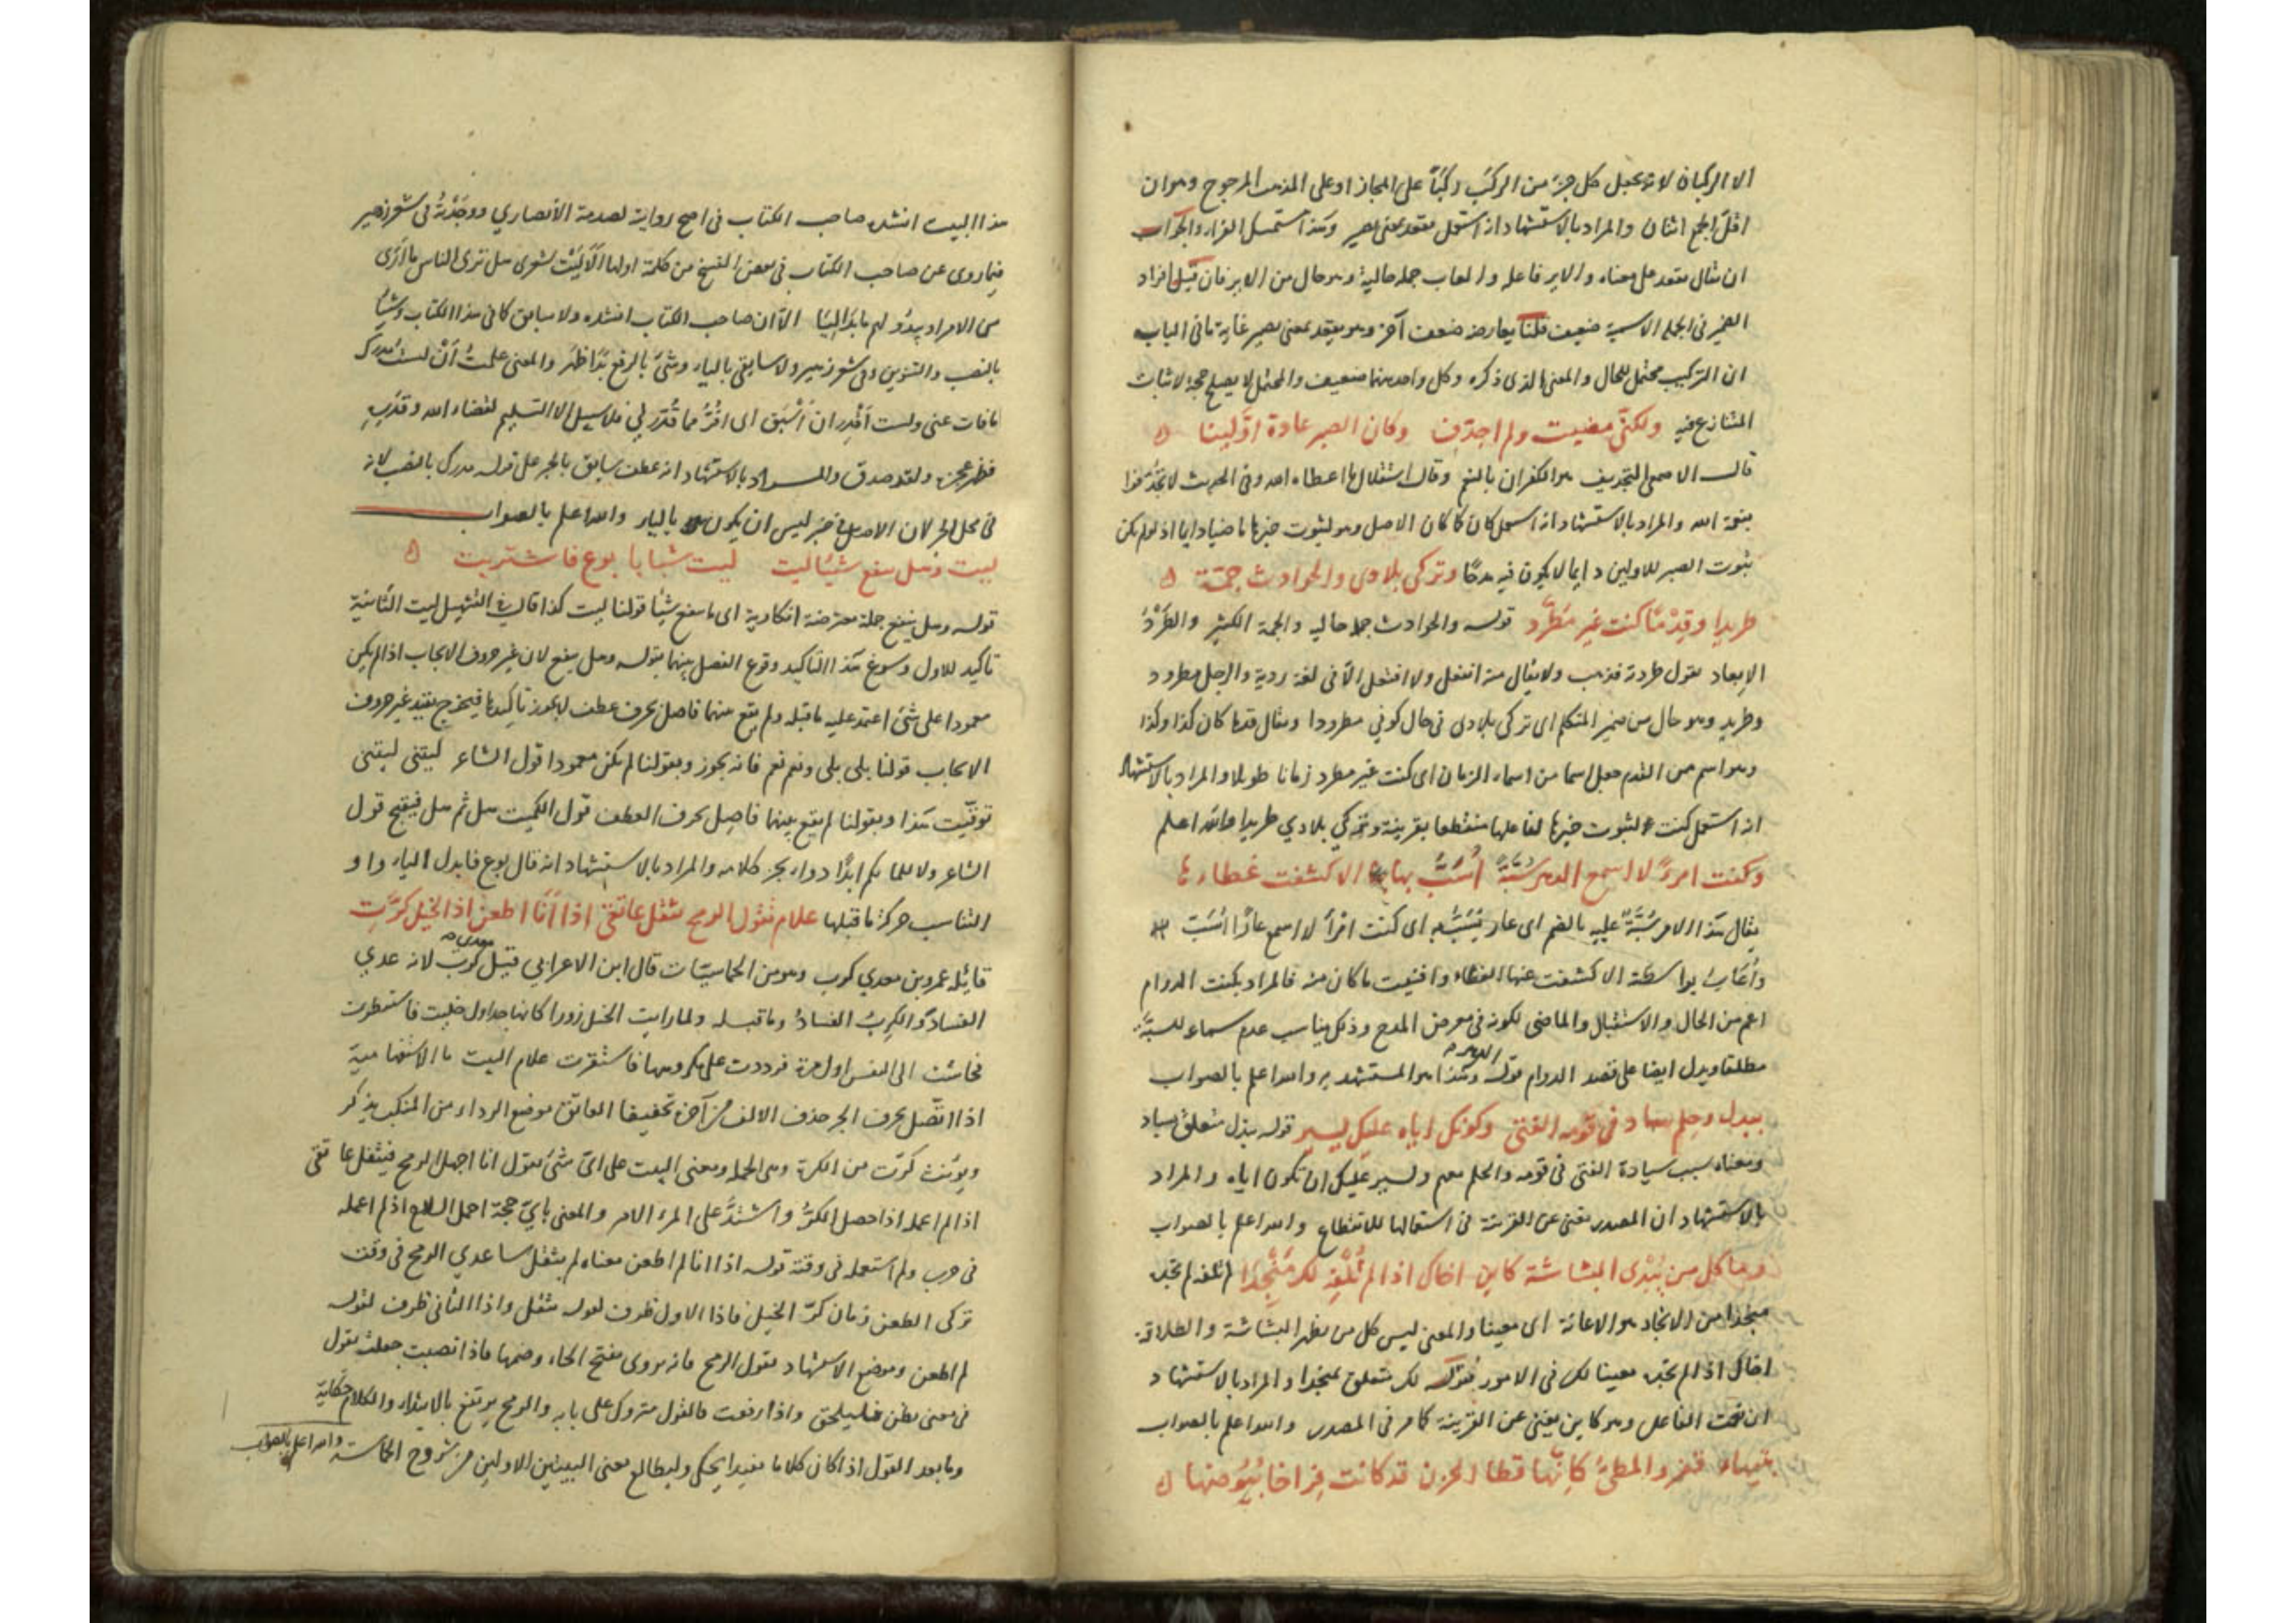 الا الركبان لانه يجعل كل جزء من الركب ركبا على المجاز او على المذهب المرجوح وهو ان
اقل الجمع اثنان والمراد بالاستشهاد انه استعمل يقعد بمعنى يصير وكذا استعمل الفراء والجواب
ان يقال يقعد على معناه والاير فاعله والعاب جملة حالية وهو حال من الاير فان قيل افراد
الضمير في الجملة الاسمية ضعيف قلنا يعارضه ضعف آخر وهو يقعد بمعنى يصير غاية ما في الباب
ان التركيب محتمل للحال والمعنى الذي ذكره وكل واحد منهما ضعيف والمحتمل لا يصلح حجة لاثبات
المتنازع فيه ولكني مضيت ولم اجدّف وكان الصبر عادة اوّلينا
قال الاصمعي التجديف هو الكفران بالنعم وقال استقلال ما اعطاه الله وفي الحديث لا تجدّفوا
بنعمة الله والمراد بالاستشهاد انه استعمل كان كما كان الاصل وهو لثبوت خبرها ماضيا دايما اذ لو لم يكن
ثبوت الصبر للاولين دايما لا يكون فيه مدحا وتركي بلادي والحوادث جمّة
طريدا وقِدْمًا كنت غير مُطَرّد قوله والحوادث جملة حالية والجمة الكثير والطَرْدُ
الابعاد تقول طردته فذهب ولا يقال منه انفعل ولا افتعل الا في لغة ردية والرجل مطرود
وطريد وهو حال من ضمير المتكلم اي تركي بلادي في حال كوني مطرودا ويقال قدما كان كذا وكذا
وهو اسم من القدم جعل اسما من اسماء الزمان اي كنت غير مطرد زمانا طويلا والمراد بالاستشهاد
انه استعمل كنت لثبوت خبرها لفاعلها منقطعا بقرينة وتركي بلادي طريدا والله اعلم
وكنت امرءً لا اسمع الدهر سُبّةً أُسَبُّ بها الا كشفت غطاءها
يقال هذا الامر سُبّةٌ عليه بالضم اي عار يُسَبُّ به اي كنت امرأً لا اسمع عارًا أُسَبّ به
وأُعَابُ بواسطته الا كشفت عنها الغطاء وافنيت ما كان منه فالمراد بكنت الدوام
اعم من الحال والاستقبال والماضي لكونه في معرض المدح وذلك يناسب عدم سماعه للسبّة
مطلقا ويدل ايضا على قصد الدوام قوله الدهر وهذا هو المستشهد به والله اعلم بالصواب
ببذل وحِلم ساد في قومه الفتى وكونك اياه عليك يسير قوله ببذل متعلق بساد
ومعناه سبب سيادة الفتى في قومه والحلم معهم ويسير عليك ان تكون اياه والمراد
بالاستشهاد ان المصدر يغني عن القرينة في استعمالها للانقطاع والله اعلم بالصواب
وما كل من يُبْدي البشاشة كاين اخاك اذا لم تُلْفِه لك مُنْجِدا لم تلفه لم تجده
منجدا من الانجاد هو الاعانة اي معينا والمعنى ليس كل من يظهر البشاشة والطلاقة
اخاك اذا لم تجده معينا لك في الامور فقوله لك متعلق بمنجدا والمراد بالاستشهاد
ان نعت الفاعل وهو كاين يغني عن القرينة كما مر في المصدر والله اعلم بالصواب
بتيهاء قفر والمطيّ كأنها قطا الحزن قد كانت فِراخا بُيُوضها
هذا البيت انشده صاحب الكتاب في اصح رواية لصدمة الأنصاري ووجَدْتُهُ في شعر زهير
فيما روى عن صاحب الكتاب في بعض النسخ من كلمة اولها الا ليت شعري هل ترى الناس ما أرى
من الامر او يبدو لهم ما بدا ليا الا ان صاحب الكتاب انشده ولا سابق كما في هذا الكتاب وشيأ
بالنصب والتنوين وفي شعر زهير ولا سابقي بالياء وشيء بالرفع بدا ظهر والمعنى علمت أن لست مدرك
ما فات عني ولست أقدر ان أسبق الى افرّ مما قُدّر لي فلا سبيل الا التسليم لقضاء الله وقدره
فظهر عجزه ولقد صدق والمراد بالاستشهاد انه عطف سابق بالجر على قوله مدرك بالنصب لانه
في محل الجر لان الاصل في خبر ليس ان يكون بالباء والله اعلم بالصواب
ليت وهل ينفع شيئا ليت ليت شبابا بوع فاشتريت
قوله وهل ينفع جملة معترضة انكارية اي ما ينفع شيأ قولنا ليت كذا قال في التسهيل ليت الثانية
تأكيد للاول وسوغ هذا التأكيد وقوع الفصل بينهما بقوله وهل ينفع لان غير حروف الايجاب اذا لم يكن
معمودا على شيء اعتمد عليه ما قبله ولم يقع بينهما فاصل بحرف عطف لا يجوز تأكيدها فيخرج بقيد غير حروف
الايجاب قولنا بلى بلى ونعم نعم فانه يجوز وبقولنا لم يكن معمودا قول الشاعر ليتني ليتني
توقّيت هذا وبقولنا لم يقع بينهما فاصل بحرف العطف قول الكميت هل ثم هل فيقبح قول
الشاعر ولا للما بهم ابدًا دواء بجز كلامه والمراد بالاستشهاد انه قال بوع فابدل الياء واو
التناسب حركة ما قبلها علام تقول الرمح يثقل عاتقي اذا أنا لم اطعن اذا الخيل كرّتِ
قائله عمرو بن معدي كرب وهو من الحماسيات قال ابن الاعرابي قيل معدي كرب لانه عدي
الفساد والكرب الفساد وما قبله ولما رايت الخيل زورا كانها جداول خليت فاسبطرت
فجاشت الى النفس اول مرة فرددت على مكروهها فاستقرت علام البيت ما الاستفهامية
اذا اتّصل بحرف الجر حذف الالف من آخره تخفيفا العاتق موضع الرداء من المنكب يذكر
ويؤنث كرّت من الكرة وهي الحملة ومعنى البيت على ايّ شيء تقول انا احمل الرمح فيثقل عاتقي
اذا لم اعمله اذا حصل الكرّ واشتدّ على المرء الامر والمعنى بأيّ حجة احمل السلاح اذا لم اعمله
في حرب ولم استعمله في وقته قوله اذا انا لم اطعن معناه لم يثقل ساعدي الرمح في وقت
تركي الطعن زمان كرّ الخيل فاذا الاول ظرف لقوله يثقل واذا الثاني ظرف لقوله
لم اطعن وموضع الاستشهاد تقول الرمح فانه يروى بفتح الحاء وضمها فاذا نصبت جعلت تقول
في معنى تظن واذا رفعت فالقول متروك على بابه والرمح يرتفع بالابتداء والكلام حكاية
وما بعد القول اذا كان كلاما مفيدا يحكى وليطالع معنى البيتين الاولين من شروح الحماسة والله اعلم بالصواب